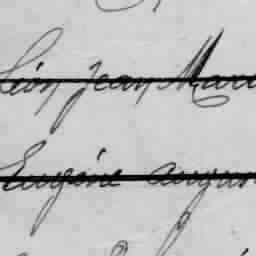 Léon Jean Mari
Eugène Augus